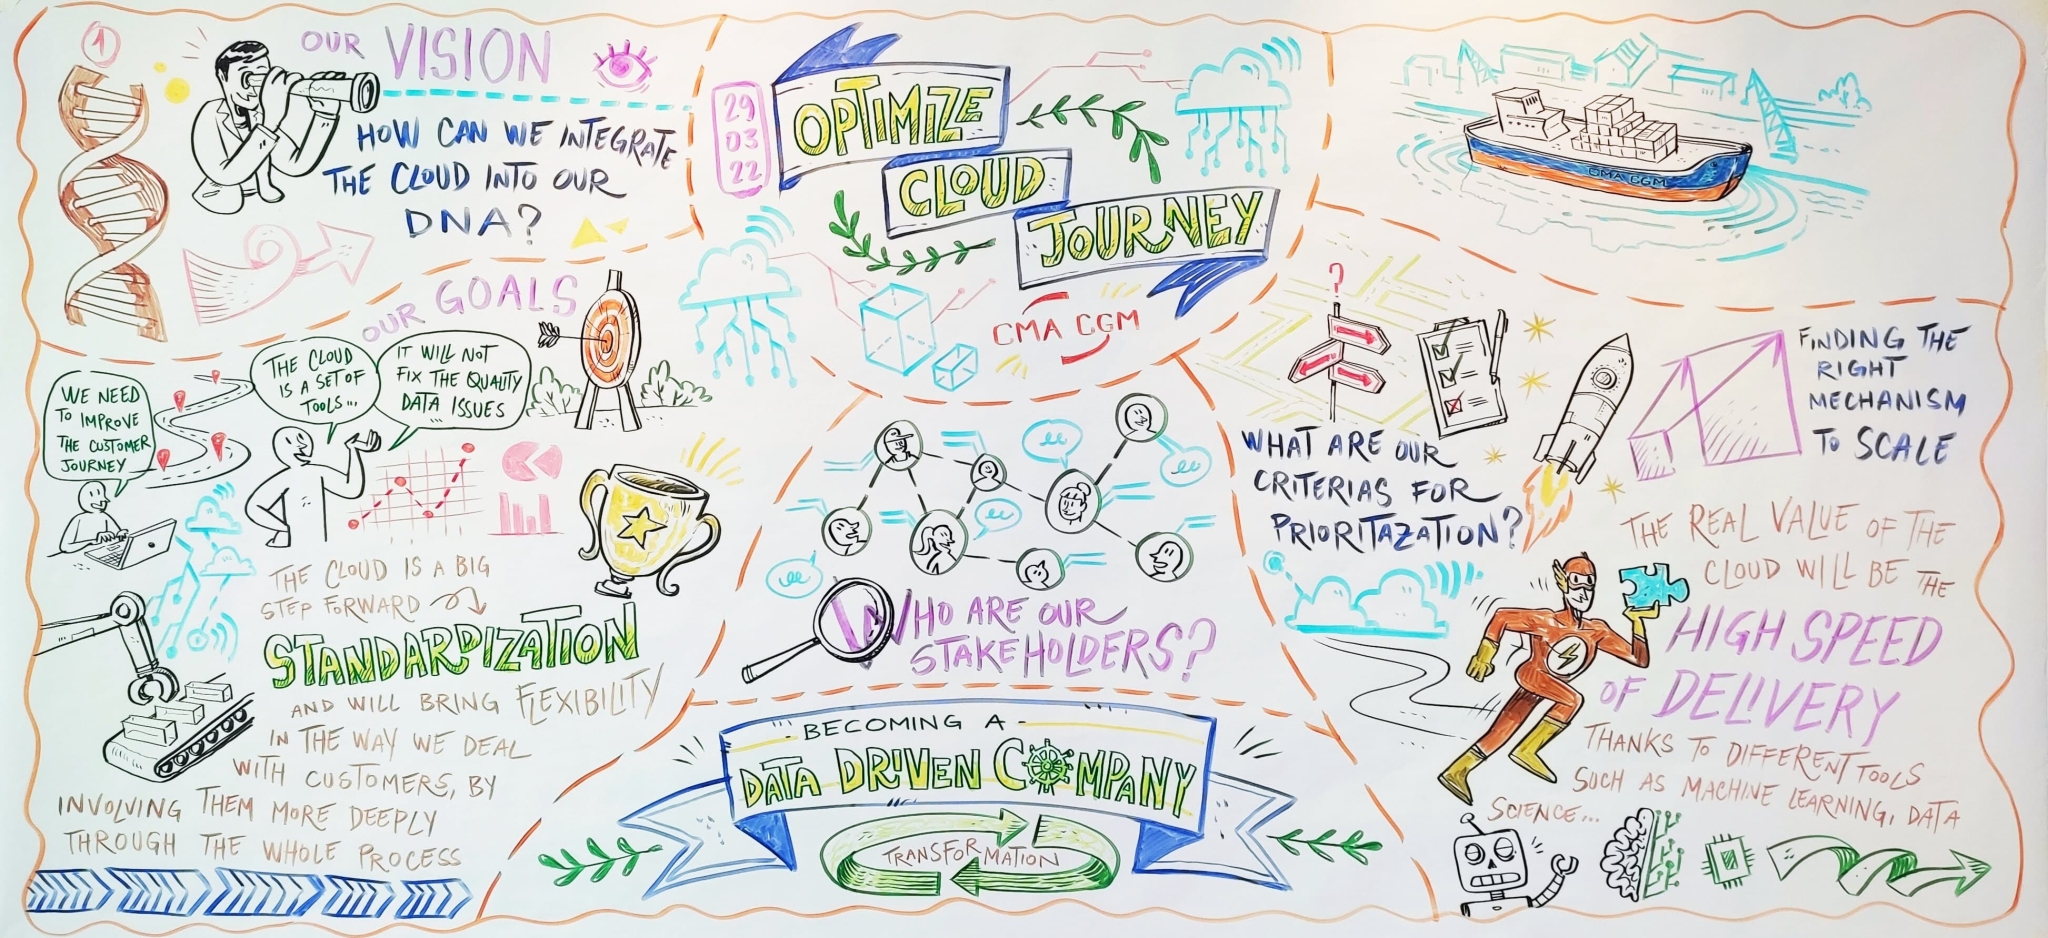 1
OUR VISION
HOW CAN WE INTEGRATE
THE CLOUD INTO OUR
DNA?
29
03
22
OPTIMIZE
CLOUD
JOURNEY
CMA CGM
CMA CGM
OUR GOALS
WE NEED
TO IMPROVE
THE CUSTOMER
JOURNEY
THE CLOUD
IS A SET OF
TOOLS...
IT WILL NOT
FIX THE QUALITY
DATA ISSUES
...
THE CLOUD IS A BIG
STEP FORWARD
STANDARDIZATION
AND WILL BRING FLEXIBILITY
IN THE WAY WE DEAL
WITH CUSTOMERS, BY
INVOLVING THEM MORE DEEPLY
THROUGH THE WHOLE PROCESS
WHO ARE OUR
STAKEHOLDERS?
BECOMING A
DATA DRIVEN COMPANY
TRANSFORMATION
?
WHAT ARE OUR
CRITERIAS FOR
PRIORITAZATION?
FINDING THE
RIGHT
MECHANISM
TO SCALE
THE REAL VALUE OF THE
CLOUD WILL BE THE
HIGH SPEED
OF DELIVERY
THANKS TO DIFFERENT TOOLS
SUCH AS MACHINE LEARNING, DATA
SCIENCE...